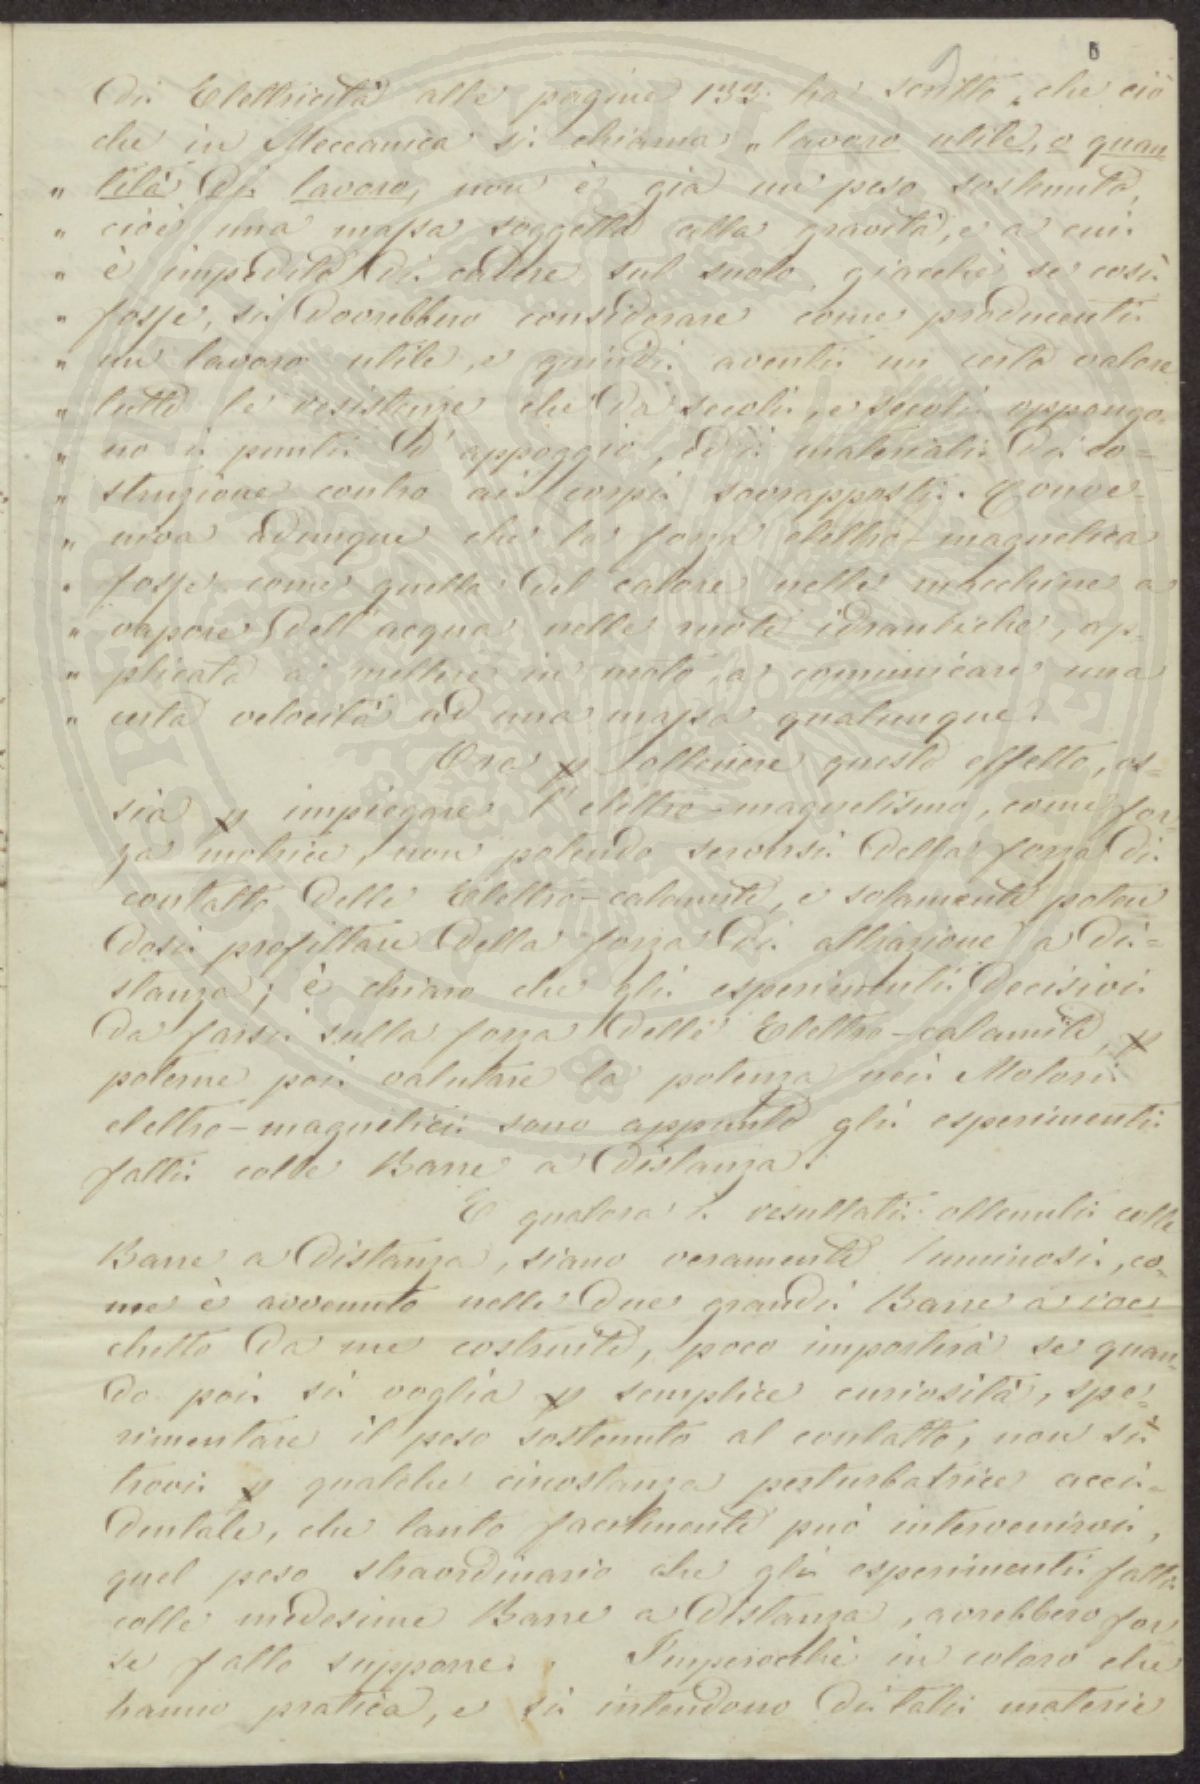 di Elettricità alle pagine 133. ha scritto, che ciò
che in Meccanica si chiama „ lavoro utile, o quan
„ tità di lavoro, non è già un peso sostenuto,
„ cioè una massa soggetta alla gravità, e a cui
„ è impedito di cadere sul suolo, giacchè se così
„ fosse, si dovrebbero considerare come producenti
„ un lavoro utile, e quindi aventi un certo valore
„ tutte le resistenze che da secoli, e secoli oppongo-
„ no i punti d'appoggio, ed i materiali di co=
„ struzione contro ai corpi sovrapposti. Conve-
„ niva adunque che la forza elettro-magnetica
„ fosse come quella del calore nelle macchine a
„ vapore, dell'acqua nelle ruote idrauliche, ap-
„ plicata a mettere in moto, a comunicare una
„ certa velocità ad una massa qualunque.
Ora p ottenere questo effetto, os-
sia p impiegare l'elettro-magnetismo, come for-
za motrice, non potendo servirsi della forza di
contatto delle Elettro-calamite, e solamente poten
dosi profittare della forza di attrazione a di=
stanza; è chiaro che gli esperimenti decisivi
da farsi sulla forza delle Elettro-calamite, p
poterne poi valutare la potenza nei Motori
elettro-magnetici sono appunto gli esperimenti
fatti colle Barre a distanza.
E qualora i resultati ottenuti colle
Barre a distanza, siano veramente luminosi, co-
me è avvenuto nelle due grandi Barre a roc
chetto da me costruite, poco importerà se quan-
do poi si voglia p semplice curiosità, spe-
rimentare il peso sostenuto al contatto, non si
trovi p qualche circostanza perturbatrice acci-
dentale, che tanto facilmente può intervenirvi,
quel peso straordinario che gli esperimenti fatti
colle medesime Barre a distanza, avrebbero for
se fatto supporre. Imperocchè in coloro che
hanno pratica, e si intendono di tali materie